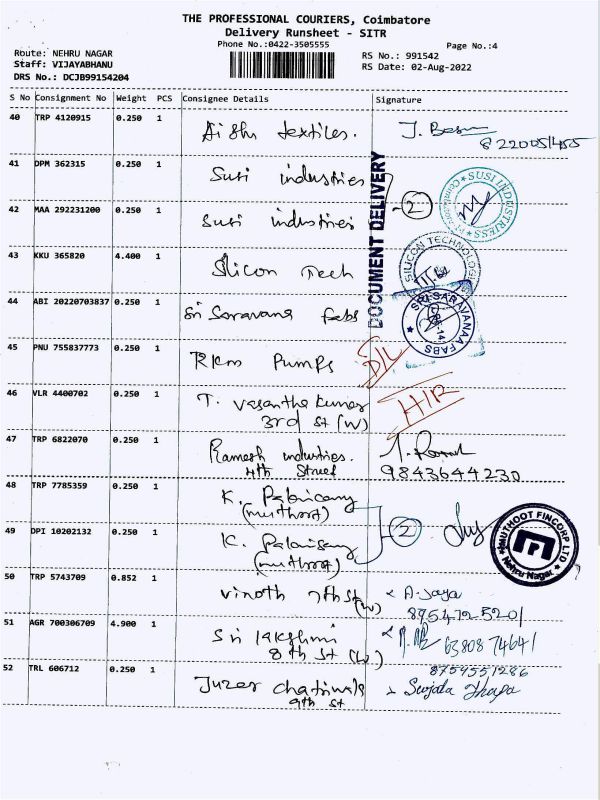 THE PROFESSIONAL COURIERS, Coimbatore
Delivery Runsheet - SITR
Phone No.:0422-3505555
Page No.:4
Route: NEHRU NAGAR
Staff: VIJAYABHANU
DRS No.: DCJB99154204
RS No.: 991542
RS Date: 02-Aug-2022
S No Consignment No Weight PCS Consignee Details Signature
40 TRP 4120915 0.250 1 textiles.
41 DPM 362315 0.250 1 Susi industries
2
SUSI INDUSTRIESS
42 MAA 292231200 0.250 1 Susi industries
DOCUMENT DELIVERY
43 KKU 365820 4.400 1 Silicon Tech
SILICON TECHNOLOGIES
44 ABI 20220703837 0.250 1 Sri Saravana fabs
SRI SARAVANAA FABS
45 PNU 755837773 0.250 1 RKM Pumps
D/L
46 VLR 4400702 0.250 1 T. Vasantha Kumar
3rd St (W)
47 TRP 6822070 0.250 1 Ramesh industries.
4th Street
9843644230
48 TRP 7785359 0.250 1 K. Palanisamy
(muthoot)
2
49 DPI 10202132 0.250 1 K. Palanisamy
(muthoot)
MUTHOOT FINCORP LTD
Nehru Nagar
50 TRP 5743709 0.852 1 Vinoth 7th St (W)
A. Jaya
51 AGR 700306709 4.900 1 Sri lakshmi
8th St (W)
63808 74641
52 TRL 606712 0.250 1 Juzer
9th St
8754551286
Sujata Thapa